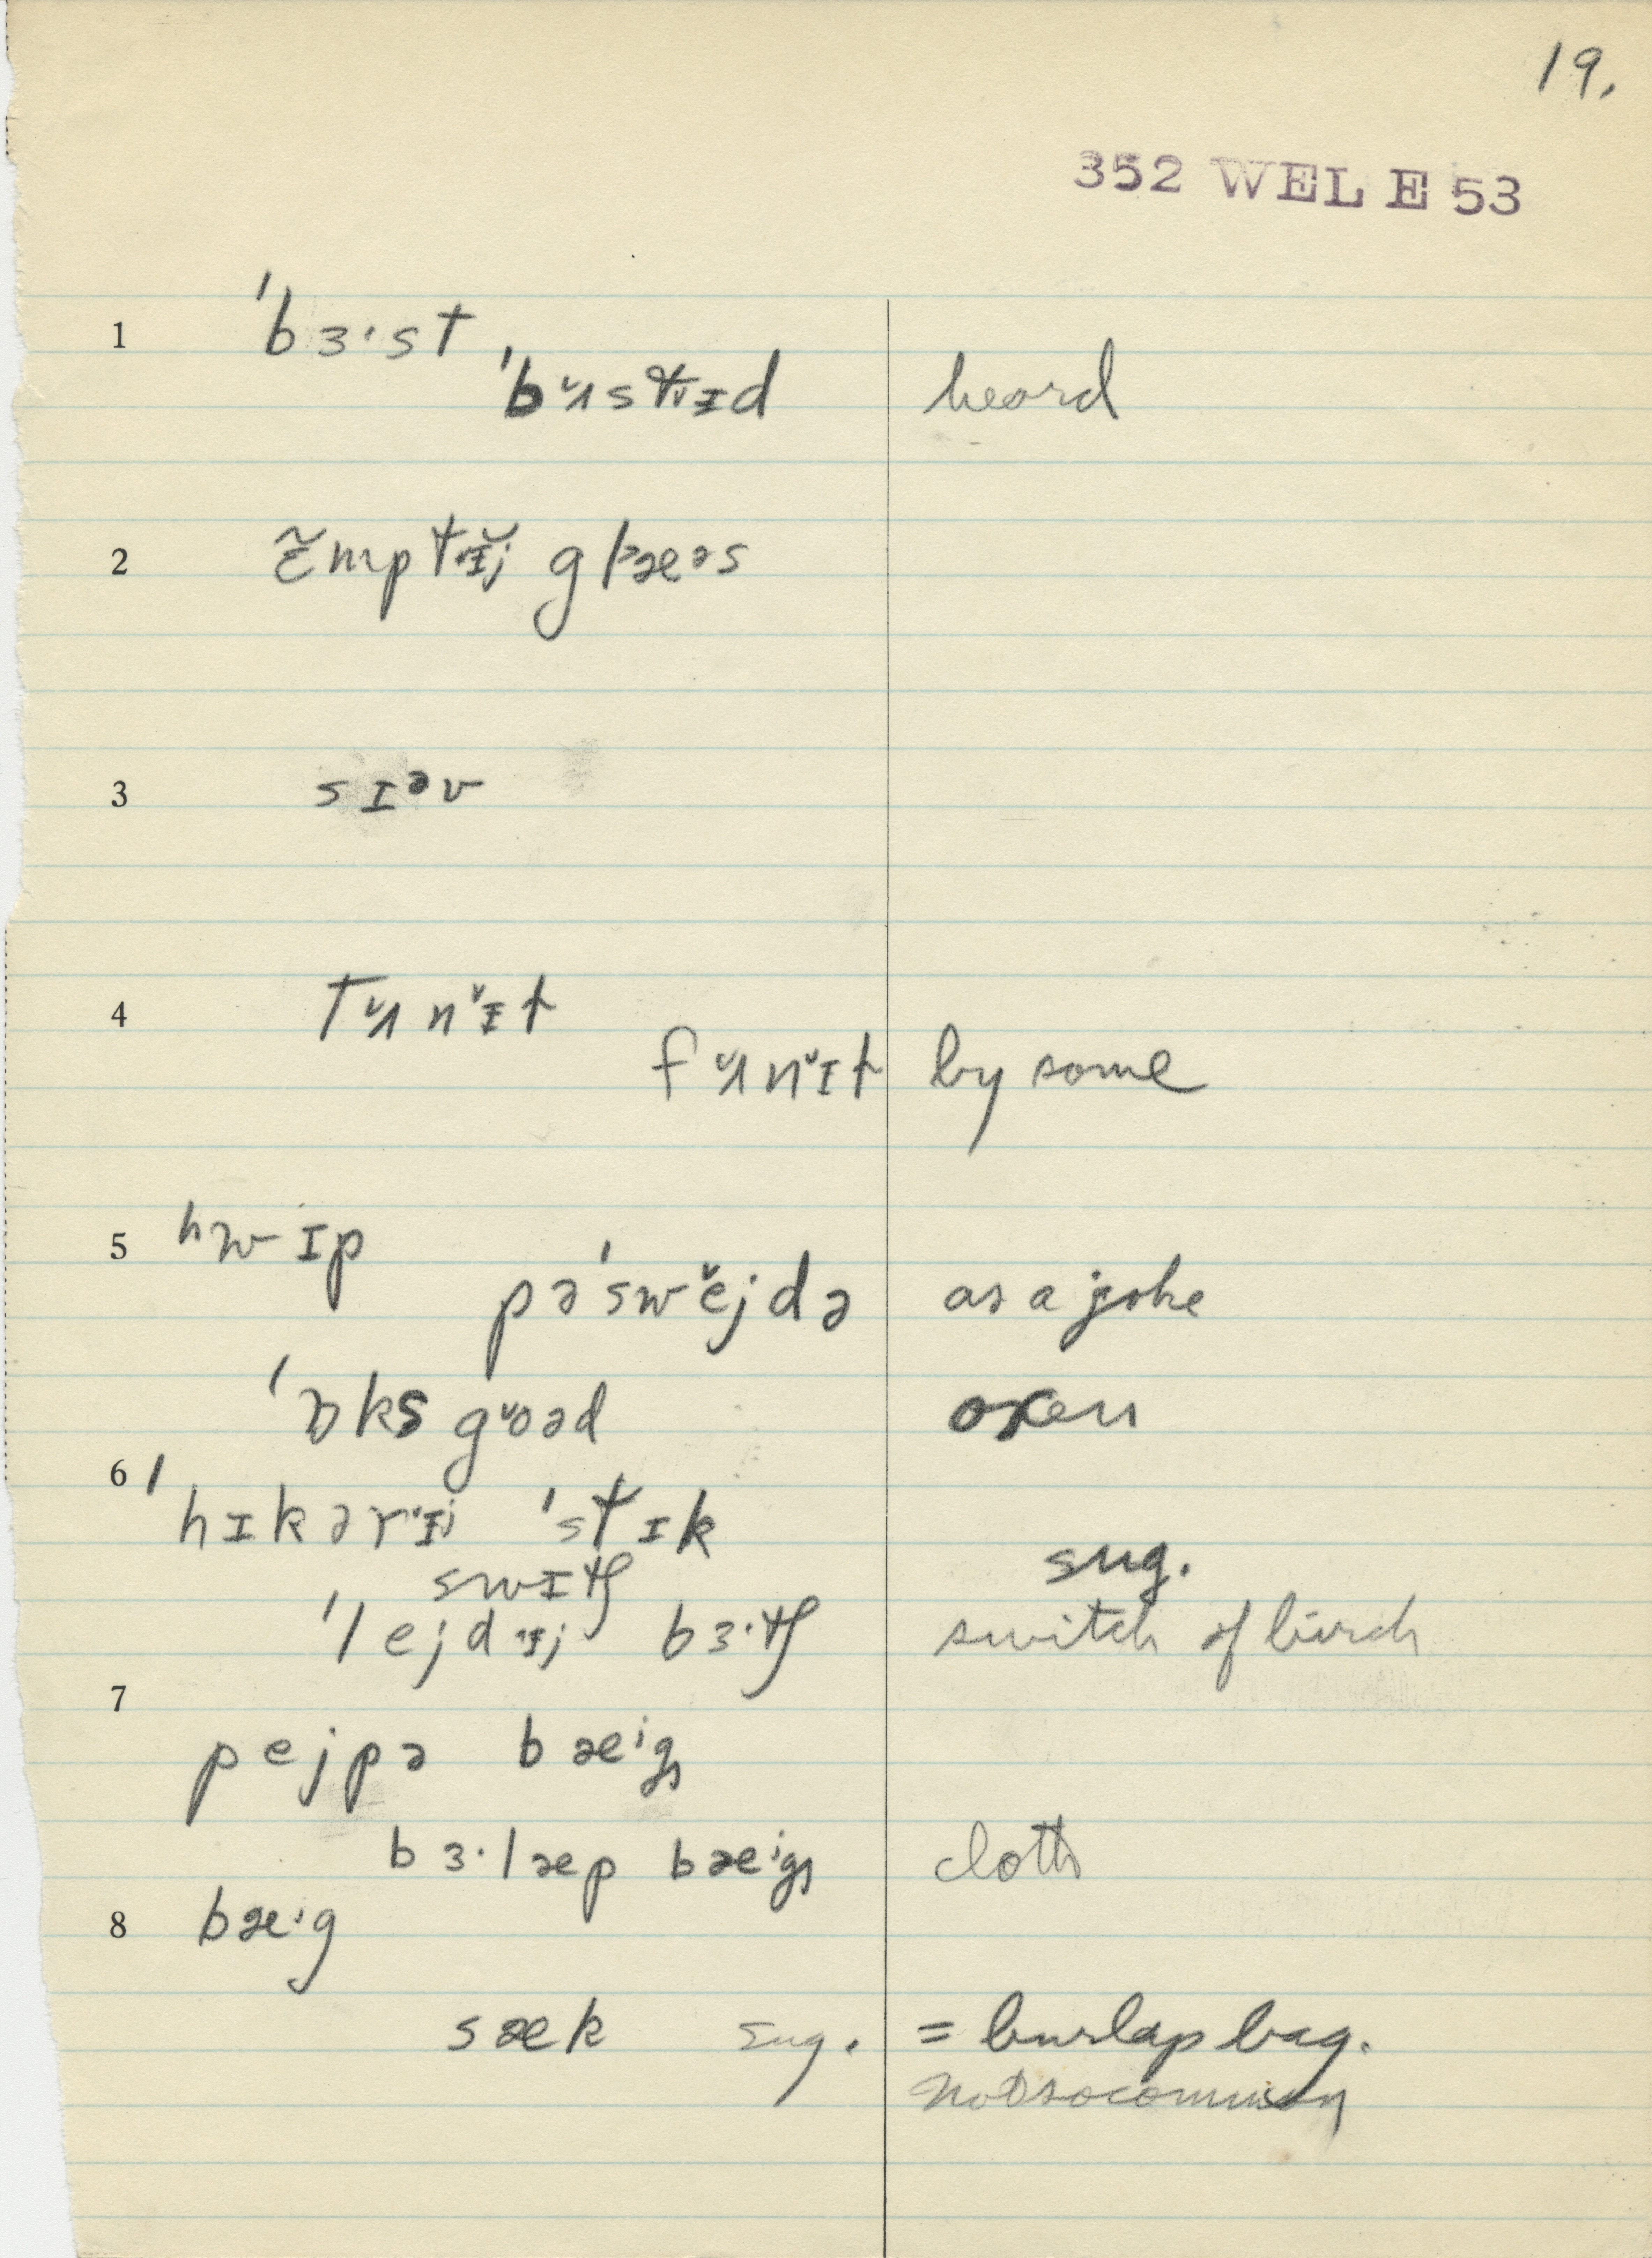 19.
352 WEL E 53
1 ˈbɜ·st
ˈbʌ̆stɪd heard
2 ɛ̃mptɪ̆j glæəs
3 sɪəv
4 tʌ̆nɪ̆t
fʌ̆nɪ̆t by some
5 hwɪp
pəˈswĕjdə as a joke
ˈɒks gŏəd oxen
6 ˈhɪkərɪj ˈstɪk
swɪtʃ sug.
ˈlejdɪj bɜ·tʃ switch of birch
7
pejpə bæⁱg
bɜ·læp bæⁱg cloth
8 bæⁱg
sæk sug. = burlap bag.
not so common